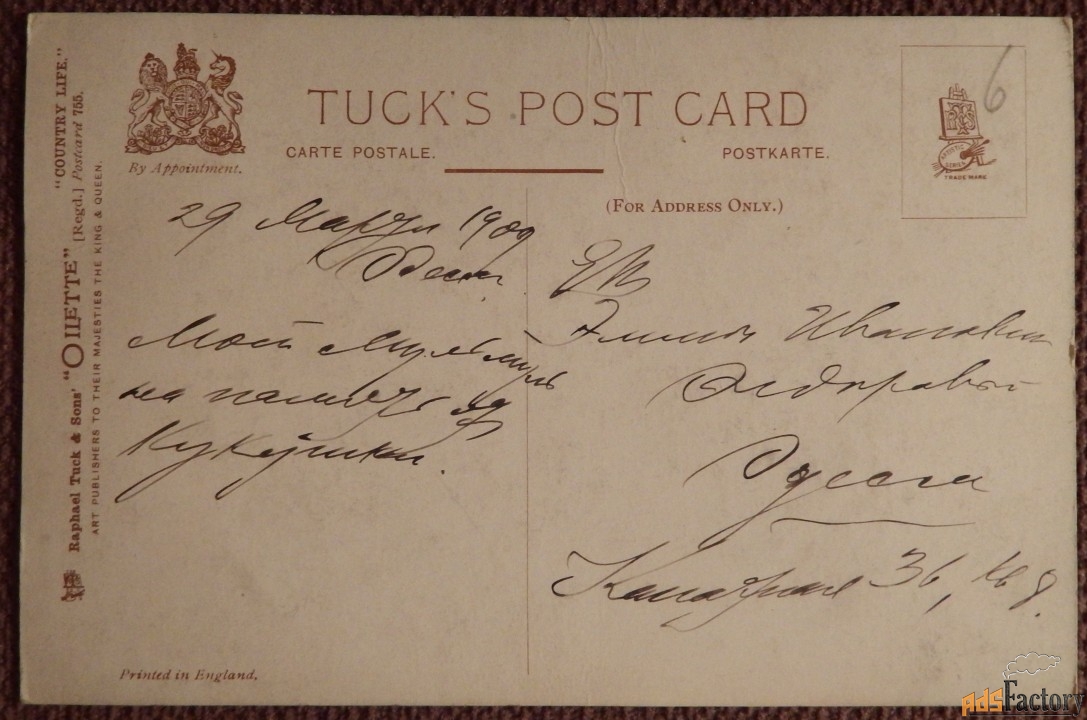 "COUNTRY LIFE."
Raphael Tuck & Sons' "OILETTE" [Regd.] Postcard 755.
ART PUBLISHERS TO THEIR MAJESTIES THE KING & QUEEN.
By Appointment.
TUCK'S POST CARD
CARTE POSTALE.
POSTKARTE.
(FOR ADDRESS ONLY.)
ARTISTIC SERIES
TRADE MARK
6
29 Марта 1909
Одесса
на память от
Кукушки.
ЕВ
Эмилии Ивановне
Одесса
Канатная 36, кв 8.
Printed in England.
adsFactory